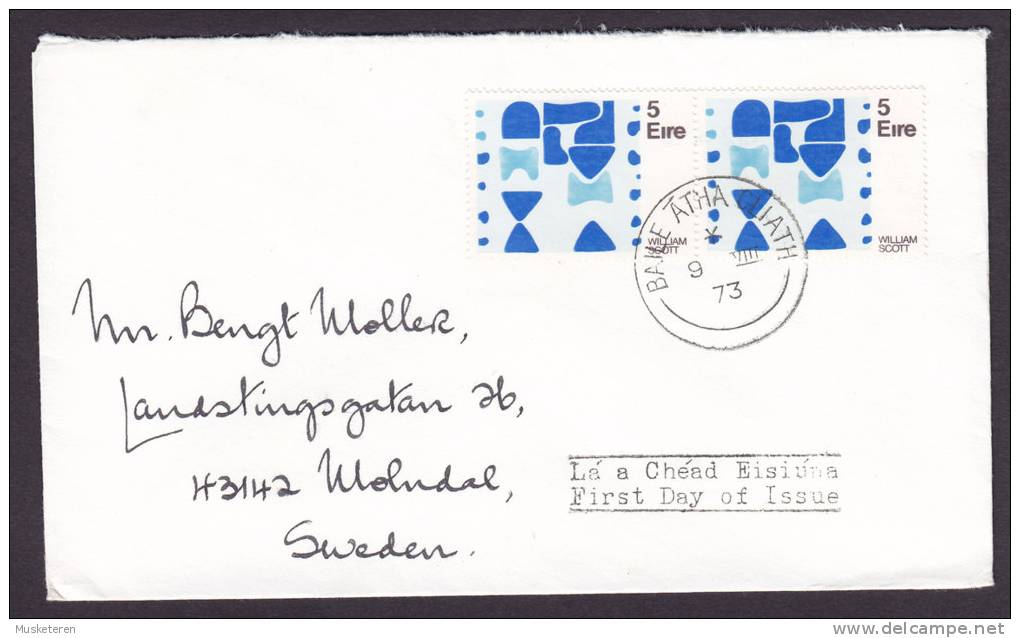 5
Eire
WILLIAM
SCOTT
5
Eire
WILLIAM
SCOTT
BAILE ÁTHA CLIATH
*
9 VIII
73
Mr. Bengt Moller,
Landstingsgatan 26,
43142 Molndal,
Sweden.
Lá a Chéad Eisiúna
First Day of Issue
Musketeren
delcampe.net